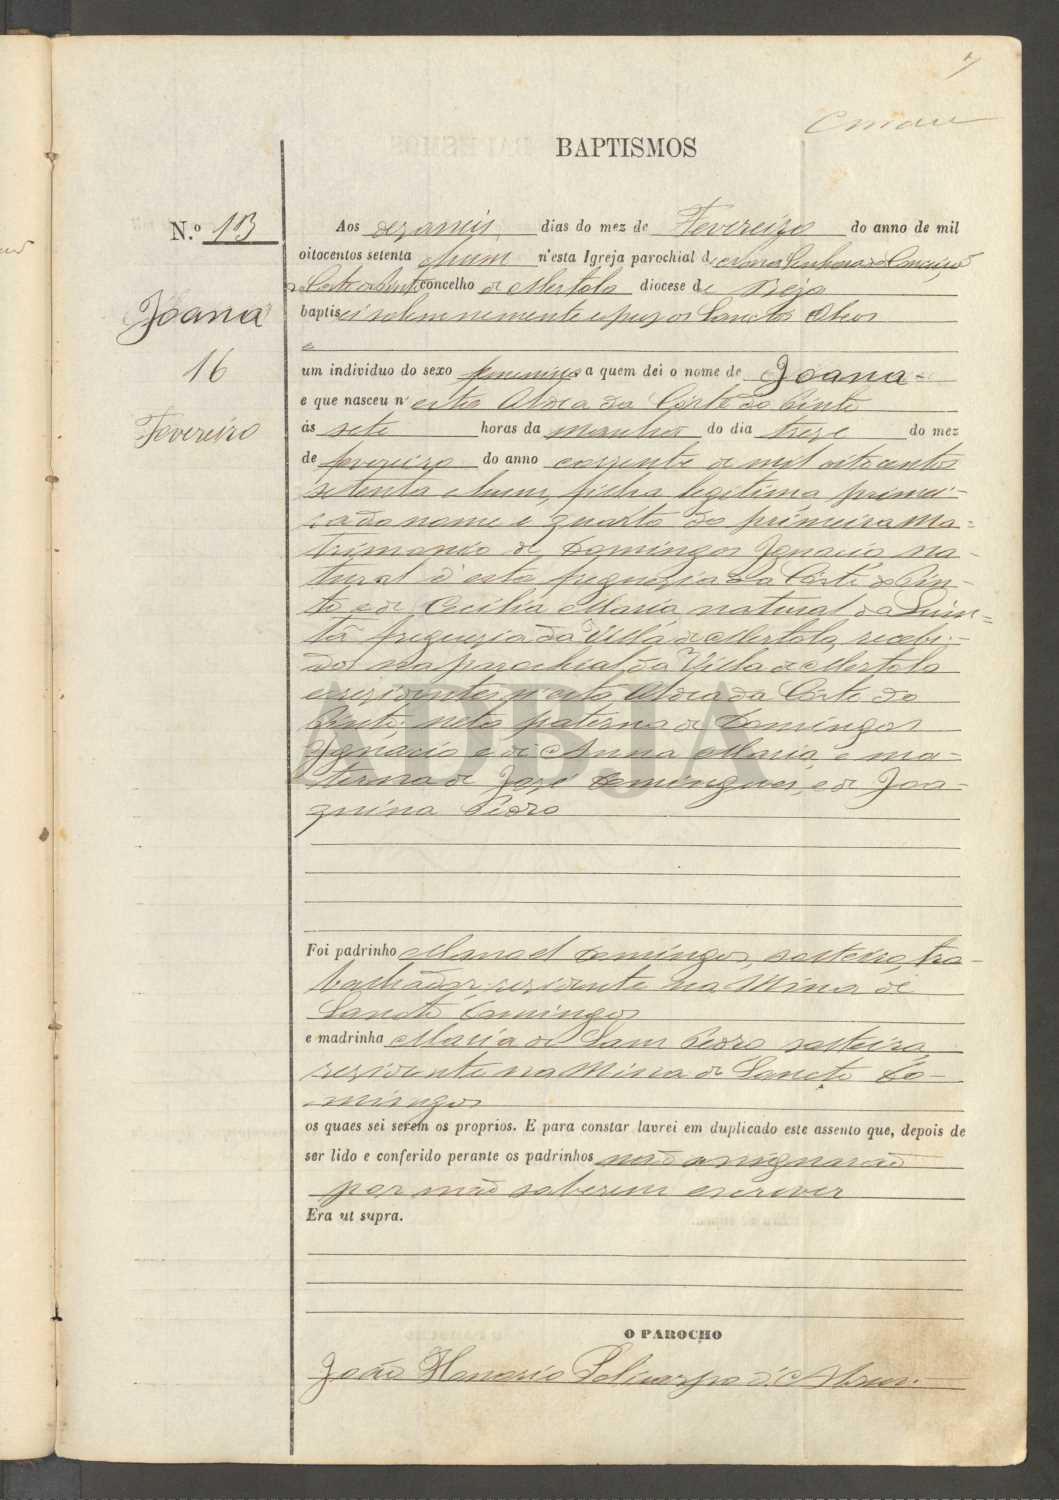 7
BAPTISMOS
N.º 13
Joana
16
Fevereiro
Aos dezaseis dias do mez de Fevereiro do anno de mil
oitocentos setenta e hum n'esta Igreja parochial de Nossa Senhora da Conceição
da Corte do Pinto concelho de Mertola diocese de Beja
baptisei solemnemente e puz os Sanctos Oleos
a
um individuo do sexo femenino a quem dei o nome de Joana
e que nasceu n'esta Aldea da Córte do Pinto
ás sete horas da manhã do dia treze do mez
de fevereiro do anno corrente de mil oitocentos
setenta e hum, filha legitima primei-
ra do nome e quarta do primeiro Ma-
trimonio de Domingos Ignacio, na-
tural d'esta freguezia da Córte do Pin-
to e de Cecilia Maria natural da Quin-
tã freguezia da Villa de Mertola, recebi-
dos na parochial da Villa de Mertola
e rezidentes n'esta Aldea da Córte do
Pinto; neta paterna de Domingos
Ignacio e de Anna Maria, e ma-
terna de José Domingues, e de Joa-
quina Pedro
ADBJA
Foi padrinho Manoel Domingos, solteiro, tra-
balhador, rezidente na Mina de
Sancto Domingos
e madrinha Maria de Sam Pedro solteira,
rezidente na Mina de Sancto Do-
mingos
os quaes sei serem os proprios. E para constar lavrei em duplicado este assento que, depois de
ser lido e conferido perante os padrinhos não asignarão
por não saberem escrever
Era ut supra.
O PAROCHO
João Honorio Policarpo d'Abreu.